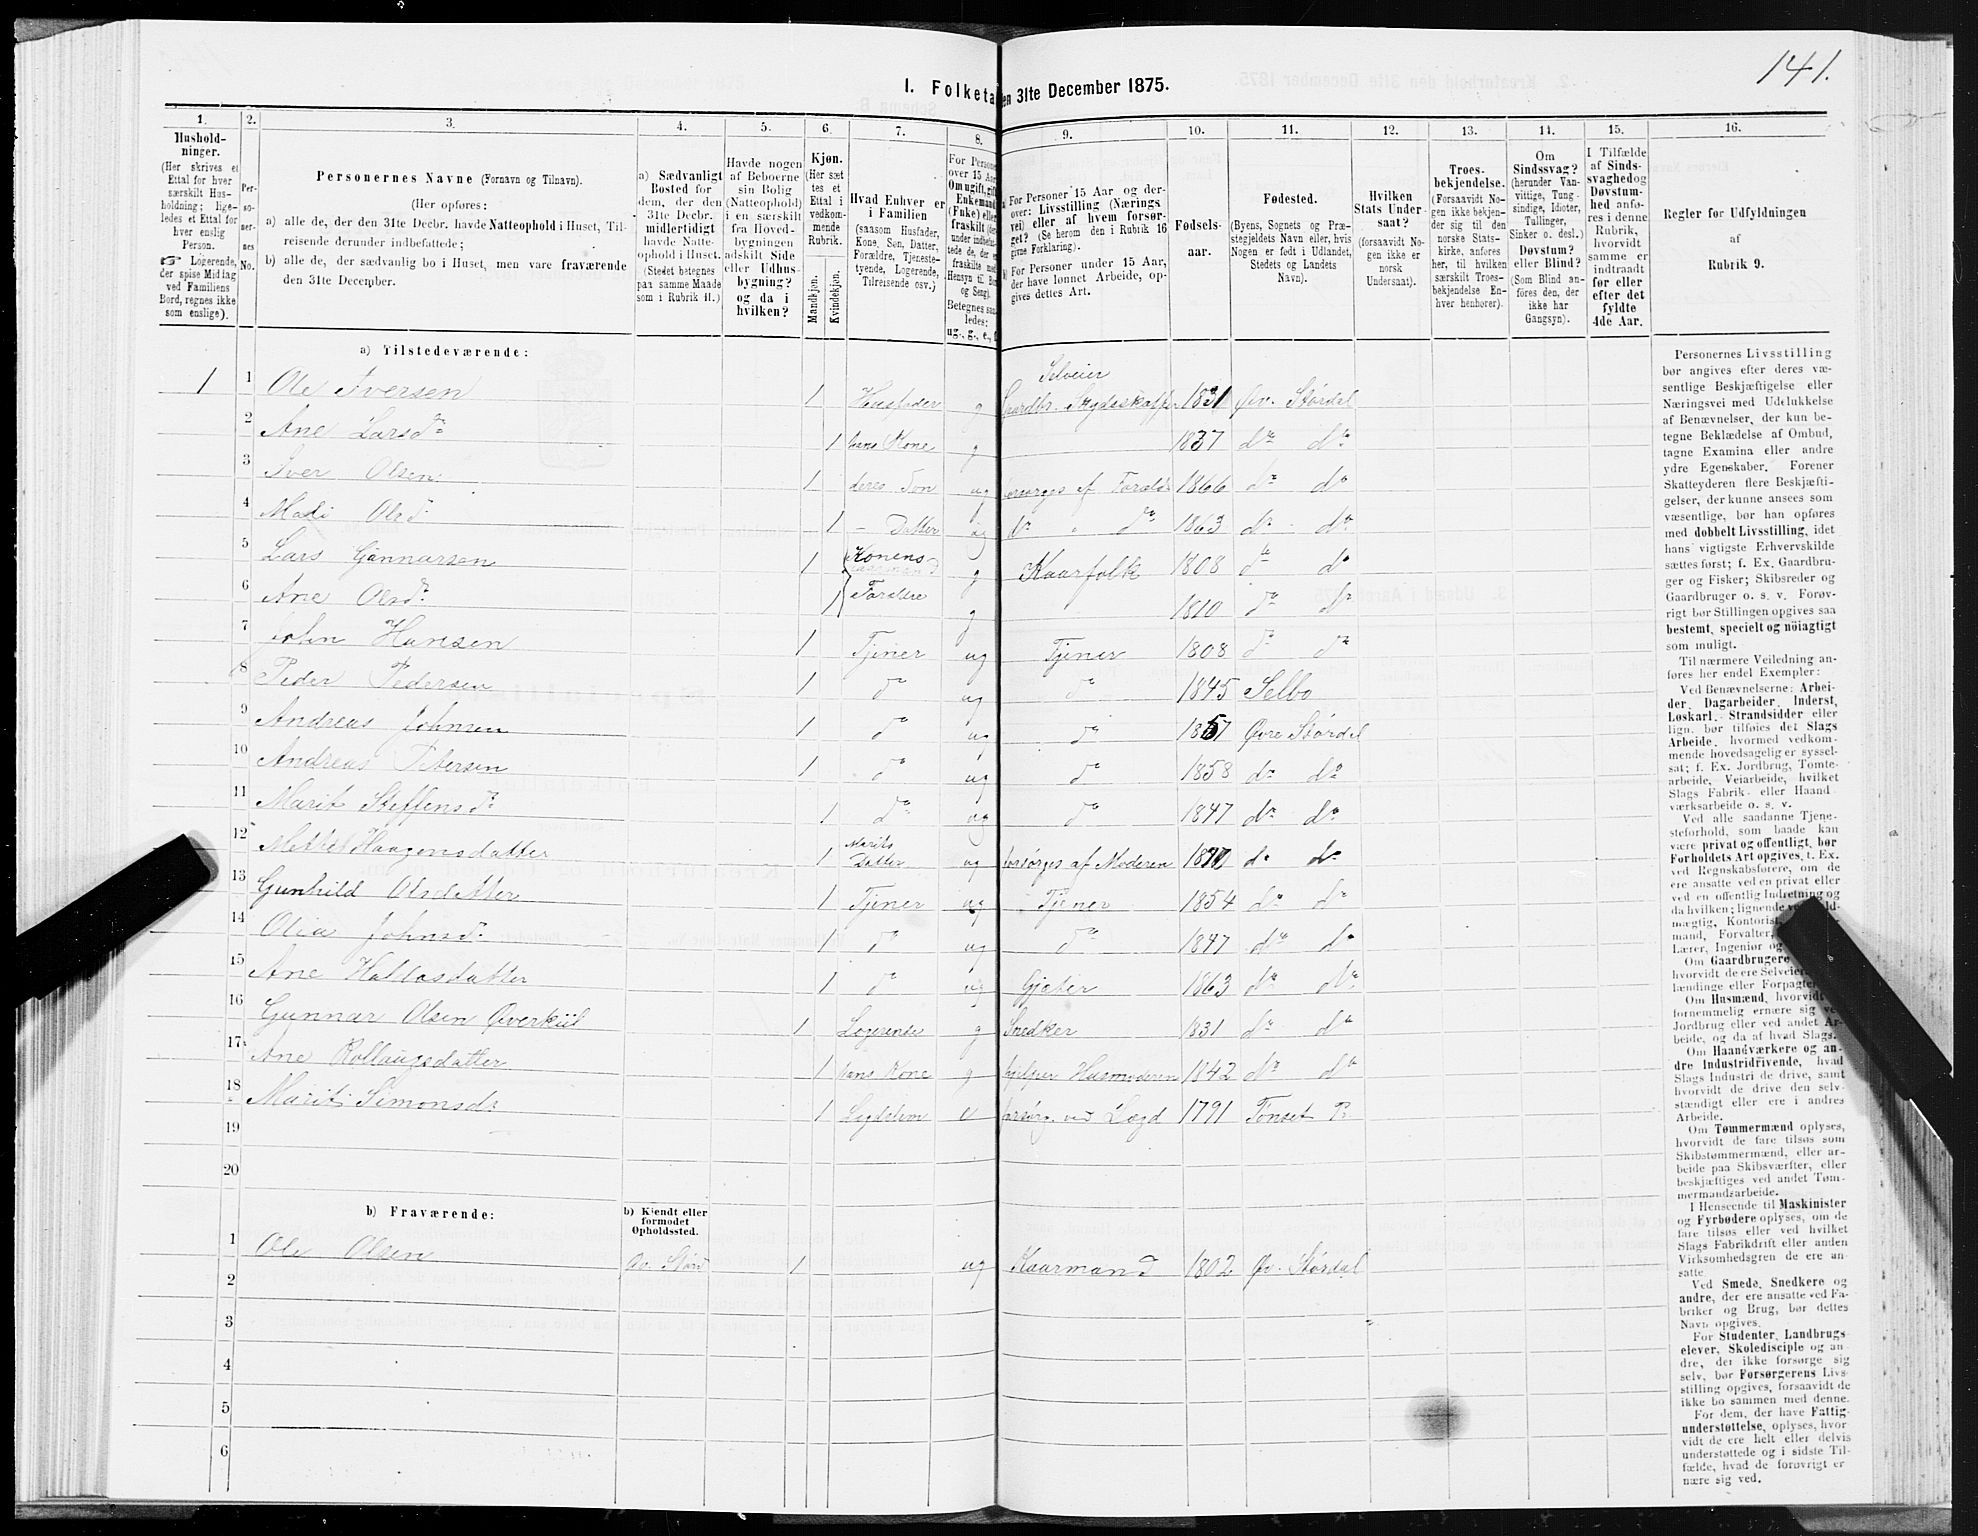 141.
I. Folketa en 31te December 1875.
1. 2. 3. 4. 5. 6. 7. 8. 9. 10. 11. 12. 13. 14. 15. 16.
Hushold-
ninger.
(Her skrives et
Ettal for hver
særskilt Hus-
holdning; lige-
ledes et Ettal for
hver enslig
Person.
☞ Logerende,
der spise Middag
ved Familiens
Bord, regnes ikke
som enslige).
Per-
so-
ner-
nes
No.
Personernes Navne (Fornavn og Tilnavn).
(Her opføres:
a) alle de, der den 31te Decbr. havde Natteophold i Huset, Til-
reisende derunder indbefattede;
b) alle de, der sædvanlig bo i Huset, men vare fraværende
den 31te December.
a) Sædvanligt
Bosted for
dem, der den
31te Decbr.
midlertidigt
havde Natte-
ophold i Huset.
(Stedet betegnes
paa samme Maade
som i Rubrik 11.)
Havde nogen
af Beboerne
sin Bolig
(Natteophold)
i en særskilt
fra Hoved-
bygningen
adskilt Side
eller Udhus-
bygning?
og da i
hvilken?
Kjøn.
(Her sæt-
tes et
Ettal i
vedkom-
mende
Rubrik.
Mandkjøn.
Kvindekjøn.
Hvad Enhver er
i Familien
(saasom Husfader,
Kone, Søn, Datter,
Forældre, Tjeneste-
tyende, Logerende,
Tilreisende osv.)
For Persone
over 15 Aar
Om ugift, gift
Enkemand
(Enke) elle
fraskilt
Betegnes saa
ledes:
ug., g., e.,
a) For Personer 15 Aar og der-
over: Livsstilling (Nærings-
vei) eller af hvem forsør-
get? (Se herom den i Rubrik 16
givne Forklaring).
b) For Personer under 15 Aar,
der have lønnet Arbeide, op-
gives dettes Art.
Fødsels-
aar.
Fødested.
(Byens, Sognets og Præ-
stegjeldets Navn eller, hvis
Nogen er født i Udlandet,
Stedets og Landets
Navn).
Hvilken
Stats Under-
saat?
(forsaavidt No-
gen ikke er
norsk
Undersaat).
Troes-
bekjendelse.
(Forsaavidt No-
gen ikke bekjen-
der sig til den
norske Stats-
kirke, anføres
her, til hvilken
særskilt Troes-
bekjendelse En-
hver henhører).
Om
Sindssvag?
(herunder Van-
vittige, Tung-
sindige, Idioter,
Tullinger,
Sinker o. desl.)
Døvstum?
eller Blind?
(Som Blind an-
føres den, der
ikke har
Gangsyn).
I Tilfælde
af Sinds-
svaghed og
Døvstum-
hed anfø-
res i denne
Rubrik,
hvorvidt
samme er
indtraadt
før eller
efter det
fyldte
4de Aar.
Regler for Udfyldningen
af
Rubrik 9.
a) Tilstedeværende:
1 1 Ole Iversen 1 Husfader g Selveier Gaardbr. Skydsskaffer 1831 Øv. Størdal
2 Ane Larsdr 1 hans Kone g 1837 do do
3 Iver Olsen 1 deres Søn ug forsørges af Foræld. 1866 do do
4 Mali Olsd. 1 - Datter ug do " do 1863 do do
5 Lars Gunnarsen 1 Konens g Kaarfolk 1808 do do
6 Ane Olsdr. 1 Forældre g 1810 do do
7 John Hansen 1 Tjener ug Tjener 1808 do do
8 Peder Pedersen 1 do ug do 1845 Selbo
9 Andreas Johnsen 1 do ug do 1857 Øvre Størdal
10 Andreas Petersen 1 do ug do 1858 do do
11 Marit Steffensdr 1 do ug do 1847 do do
12 Methe Haagensdatter 1 Marits Datter ug forsørges af Moderen do do
13 Gunhild Olsdatter 1 Tjener ug Tjener 1854 do do
14 Olia Johnsd. 1 do ug do 1847 do do
15 Ane Haldosdatter 1 do ug Gjæter 1863 do do
16 Gunnar Olsen Øverkiil 1 Logerende g Snedker 1831 do do
17 Ane Rollaugsdatter 1 hans Kone g hjelper Husmoderen 1842 do do
18 Marit Simonsdr 1 Lægdslem e forsørg. ved Lægd 1791 Tønset P.
19
20
b) Fraværende:
b) Kjendt eller
formodet
Opholdssted.
1 Ole Olsen Øv. Størd 1 ug Kaarmand 1802 Øv. Størdal
2
3
4
5
6
Personernes Livsstilling
bør angives efter deres væ-
sentlige Beskjæftigelse eller
Næringsvei med Udelukkelse
af Benævnelser, der kun be-
tegne Beklædelse af Ombud,
tagne Examina eller andre
ydre Egenskaber. Forener
Skatteyderen flere Beskjæfti-
gelser, der kunne ansees som
væsentlige, bør han opføres
med dobbelt Livsstilling, idet
hans vigtigste Erhvervskilde
sættes først; f. Ex. Gaardbru-
ger og Fisker; Skibsreder og
Gaardbruger o. s. v. Forøv-
rigt bør Stillingen opgives saa
bestemt, specielt og nöiagtigt
som muligt.
Til nærmere Veiledning an-
føres her endel Exempler:
Ved Benævnelserne: Arbei-
der, Dagarbeider, Inderst,
Løskarl, Strandsidder eller
lign. bør tilføies det Slags
Arbeide, hvormed vedkom-
mende hovedsagelig er syssel-
sat; f. Ex. Jordbrug, Tomte-
arbeide, Veiarbeide, hvilket
Slags Fabrik- eller Haand-
værksarbeide o. s. v.
Ved alle saadanne Tjene-
steforhold, som baade kan
være privat og offentligt, bør
Forholdets Art opgives, t. Ex.
ved Regnskabsførere, om de
ere ansatte ved en privat eller
ved en offentlig Indretning og
da hvilken; lignende ved
mægtig, Kontorist,
mand, Forvalter,
Lærer, Ingeniør og
Om Gaardbrugere
hvorvidt de ere Selveiere,
lændinge eller Forpagtere.
Om Husmænd, hvorvidt
fornemmelig ernære sig ved
Jordbrug eller ved andet Ar-
beide, og da af hvad Slags.
Om Haandværkere og an-
dre Industridrivende, hvad
Slags Industri de drive, samt
hvorvidt de drive den selv-
stændigt eller ere i andres
Arbeide.
Om Tømmermænd oplyses,
hvorvidt de fare tilsøs som
Skibstømmermænd, eller ar-
beide paa Skibsværfter, eller
beskjæftiges ved andet Tøm-
mermandsarbeide.
I Henseende til Maskinister
og Fyrbødere oplyses, om de
fare tilsøs eller ved hvilket
Slags Fabrikdrift eller anden
Virksomhedsgren de ere an-
satte.
Ved Smede, Snedkere og
andre, der ere ansatte ved Fa-
briker og Brug, bør dettes
Navn opgives.
For Studenter, Landbrugs-
elever, Skoledisciple og an-
dre, der ikke forsørge sig
selv, bør Forsørgerens Livs-
stilling opgives, forsaavidt de
ikke bo sammen med denne.
For dem, der have Fattig-
understøttelse, oplyses, hvor-
vidt de ere helt eller delvis
understøttede og i sidste Til-
fælde, hvad de forøvrigt er-
nære sig ved.